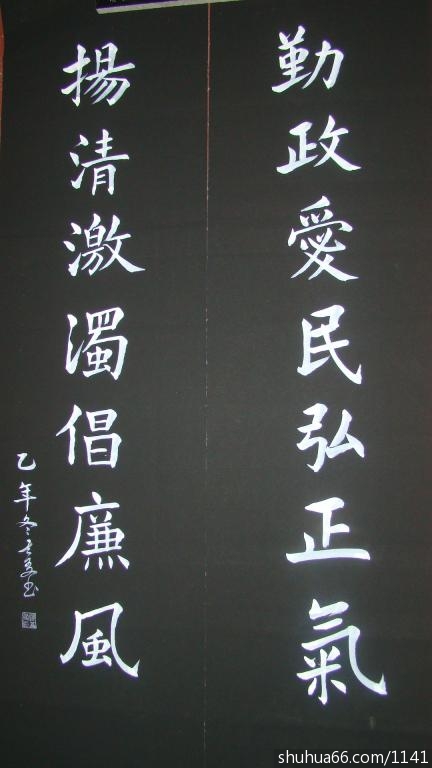 勤政愛民弘正氣
揚清激濁倡廉風
乙年冬
shuhua66.com/1141